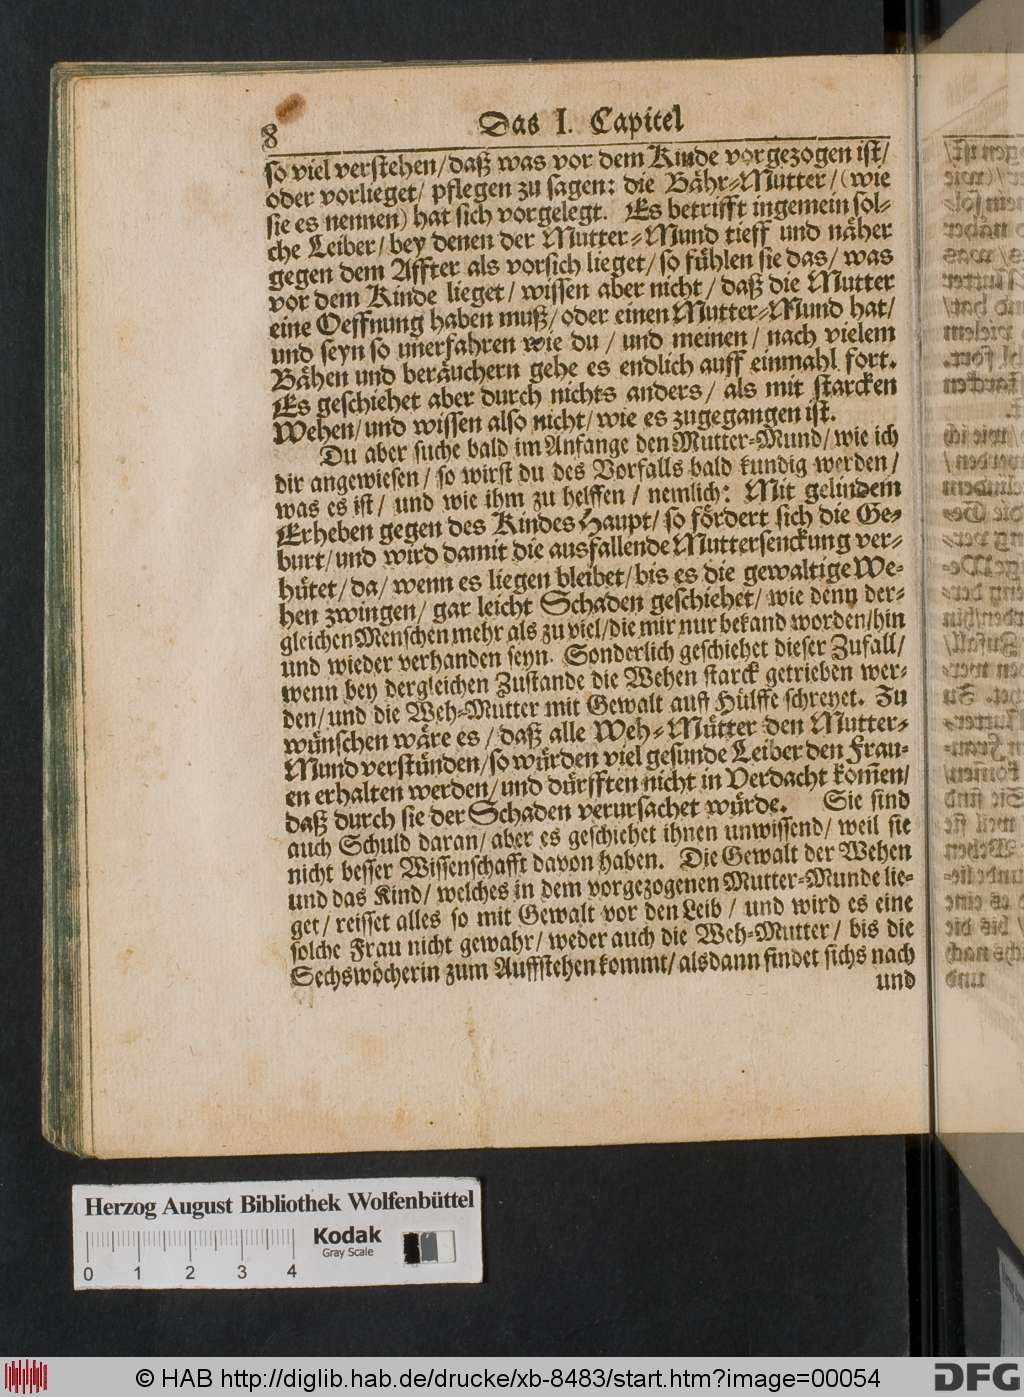 8
Das I. Capitel
so viel verstehen/ daß was vor dem Kinde vorgezogen ist/
oder vorlieget/ pflegen zu sagen: die Bähr-Mutter/ (wie
sie es nennen) hat sich vorgelegt. Es betrifft ingemein sol-
che Leiber/ bey denen der Mutter-Mund tieff und näher
gegen dem Affter als vorsich lieget/ so fühlen sie das/ was
vor dem Kinde lieget/ wissen aber nicht/ daß die Mutter
eine Oeffnung haben muß/ oder einen Mutter-Mund hat/
und seyn so unerfahren wie du/ und meinen/ nach vielem
Bähen und beräuchern gehe es endlich auff einmahl fort.
Es geschiehet aber durch nichts anders/ als mit starcken
Wehen/ und wissen also nicht/ wie es zugegangen ist.
Du aber suche bald im Anfange den Mutter-Mund/ wie ich
dir angewiesen/ so wirst du des Vorfalls bald kundig werden/
was es ist/ und wie ihm zu helffen/ nemlich: Mit gelindem
Erheben gegen des Kindes Haupt/ so fördert sich die Ge-
burt/ und wird damit die ausfallende Muttersenckung ver-
hütet/ da/ wenn es liegen bleibet/ bis es die gewaltige We-
hen zwingen/ gar leicht Schaden geschiehet/ wie denn der-
gleichen Menschen mehr als zu viel/ die mir nur bekand worden/ hin
und wieder verhanden seyn. Sonderlich geschiehet dieser Zufall/
wenn bey dergleichen Zustande die Wehen starck getrieben wer-
den/ und die Weh-Mutter mit Gewalt auff Hülffe schreyet. Zu
wünschen wäre es/ daß alle Weh-Mütter den Mutter-
Mund verstünden/ so würden viel gesunde Leiber den Frau-
en erhalten werden/ und dürfften nicht in Verdacht kom̃en/
daß durch sie der Schaden verursachet würde. Sie sind
auch Schuld daran/ aber es geschiehet ihnen unwissend/ weil sie
nicht besser Wissenschafft davon haben. Die Gewalt der Wehen
und das Kind/ welches in dem vorgezogenen Mutter-Munde lie-
get/ reisset alles so mit Gewalt vor den Leib/ und wird es eine
solche Frau nicht gewahr/ weder auch die Weh-Mutter/ bis die
Sechswöcherin zum Auffstehen kommt/ alsdann findet sichs nach
und
Herzog August Bibliothek Wolfenbüttel
Kodak
Gray Scale
0 1 2 3 4
© HAB http://diglib.hab.de/drucke/xb-8483/start.htm?image=00054
DFG